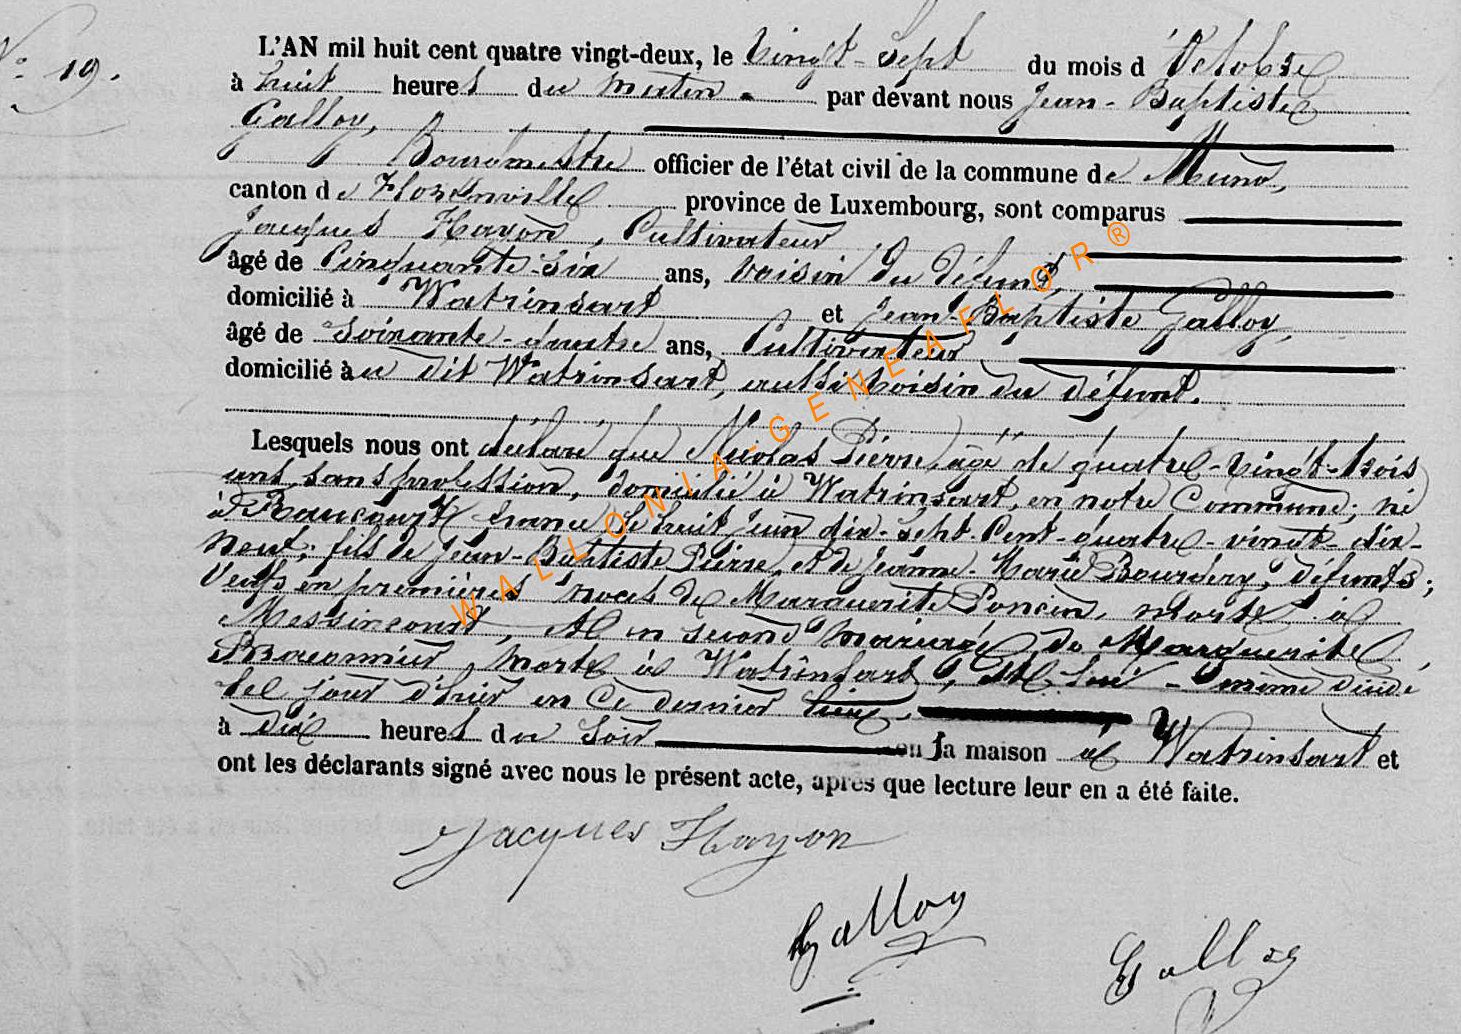 N° 19.
L'AN mil huit cent quatre vingt-deux, le Vingt-sept du mois d'Octobre
à huit heures du matin. par devant nous Jean-Baptiste
Galloy,
Bourgmestre officier de l'état civil de la commune de Muno,
canton de Florenville province de Luxembourg, sont comparus
Jacques Hayon, Cultivateur
âgé de Cinquante-six ans, voisin du défunt,
domicilié à Watrinsart et Jean-Baptiste Galloy,
âgé de Soixante-quatre ans, Cultivateur
domicilié au dit Watrinsart, aussi voisin du défunt.
Lesquels nous ont déclaré que Nicolas Pierre, âgé de quatre-vingt-trois
ans, sans profession, domicilié à Watrinsart, en notre Commune; né
à (France) le huit Juin dix-sept-cent-quatre-vingt-dix-
neuf; fils de Jean-Baptiste Pierre, et de Jeanne-Marie défunts;
Veuf en premières noces de Marguerite Poncin, morte à
Messincourt, et en second mariage de Marguerite
morte à Watrinsart, est lui-même décédé
le jour d'hier en ce dernier lieu,
à dix heures du soir en la maison à Watrinsart et
ont les déclarants signé avec nous le présent acte, après que lecture leur en a été faite.
Jacques Hayon
Galloy
Galloy
WALLONIA-GENEAFLOR®